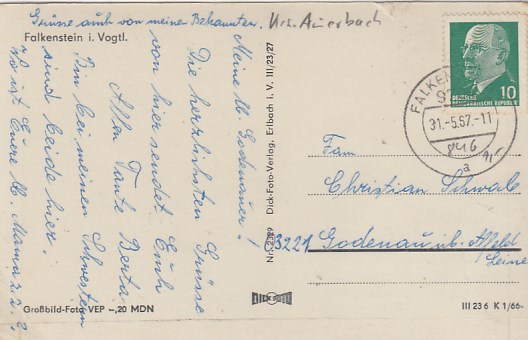 Grüsse auch von meinen Bekannten.
Krs. Auerbach
Falkenstein i. Vogtl.
Meine lb. Godenauer!
Die herzlichsten Grüsse
von hier sendet Euch
Allen Tante Berta.
Bin bei meinen Schwestern
sind beide hier.
Wo ist Eure lb. Mama z. Z.?
Großbild-Foto VEP –,20 MDN
Nr. 2329 Dick-Foto-Verlag, Erlbach i. V. III/23/27
DICK FOTO
10
DEUTSCHE
DEMOKRATISCHE REPUBLIK
FALKEN
31.-5.67.-11
a
Fam
Christian Schwab
3221 Godenau üb. Alfeld
Leine
III 23 6 K 1/66